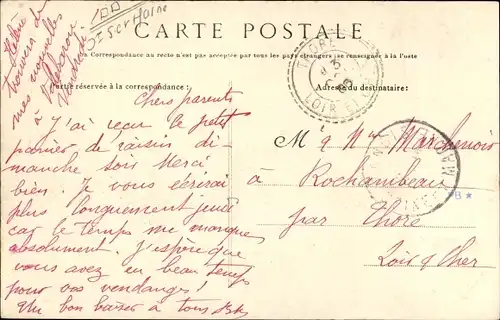 Hélène
trouvera de
mes nouvelles
à
Vendredi
CARTE POSTALE
La Correspondance au recto n'est pas acceptée par tous les pays étrangers (se renseigner à la Poste)
Partie réservée à la correspondance:
Adresse du destinataire:
THORÉ
LOIR ET CHER
Chers parents
J'ai reçu le petit
panier de raisin di-
manche soir Merci
bien. Je vous écrirai
plus longuement jeudi
car le temps me manque
absolument. J'espère que
vous avez eu beau temps
pour vos vendanges!
Un bon baiser à tous
Mr & Mme Marchenoir
à Rochambeau
par Thoré
Loir & Cher
B *